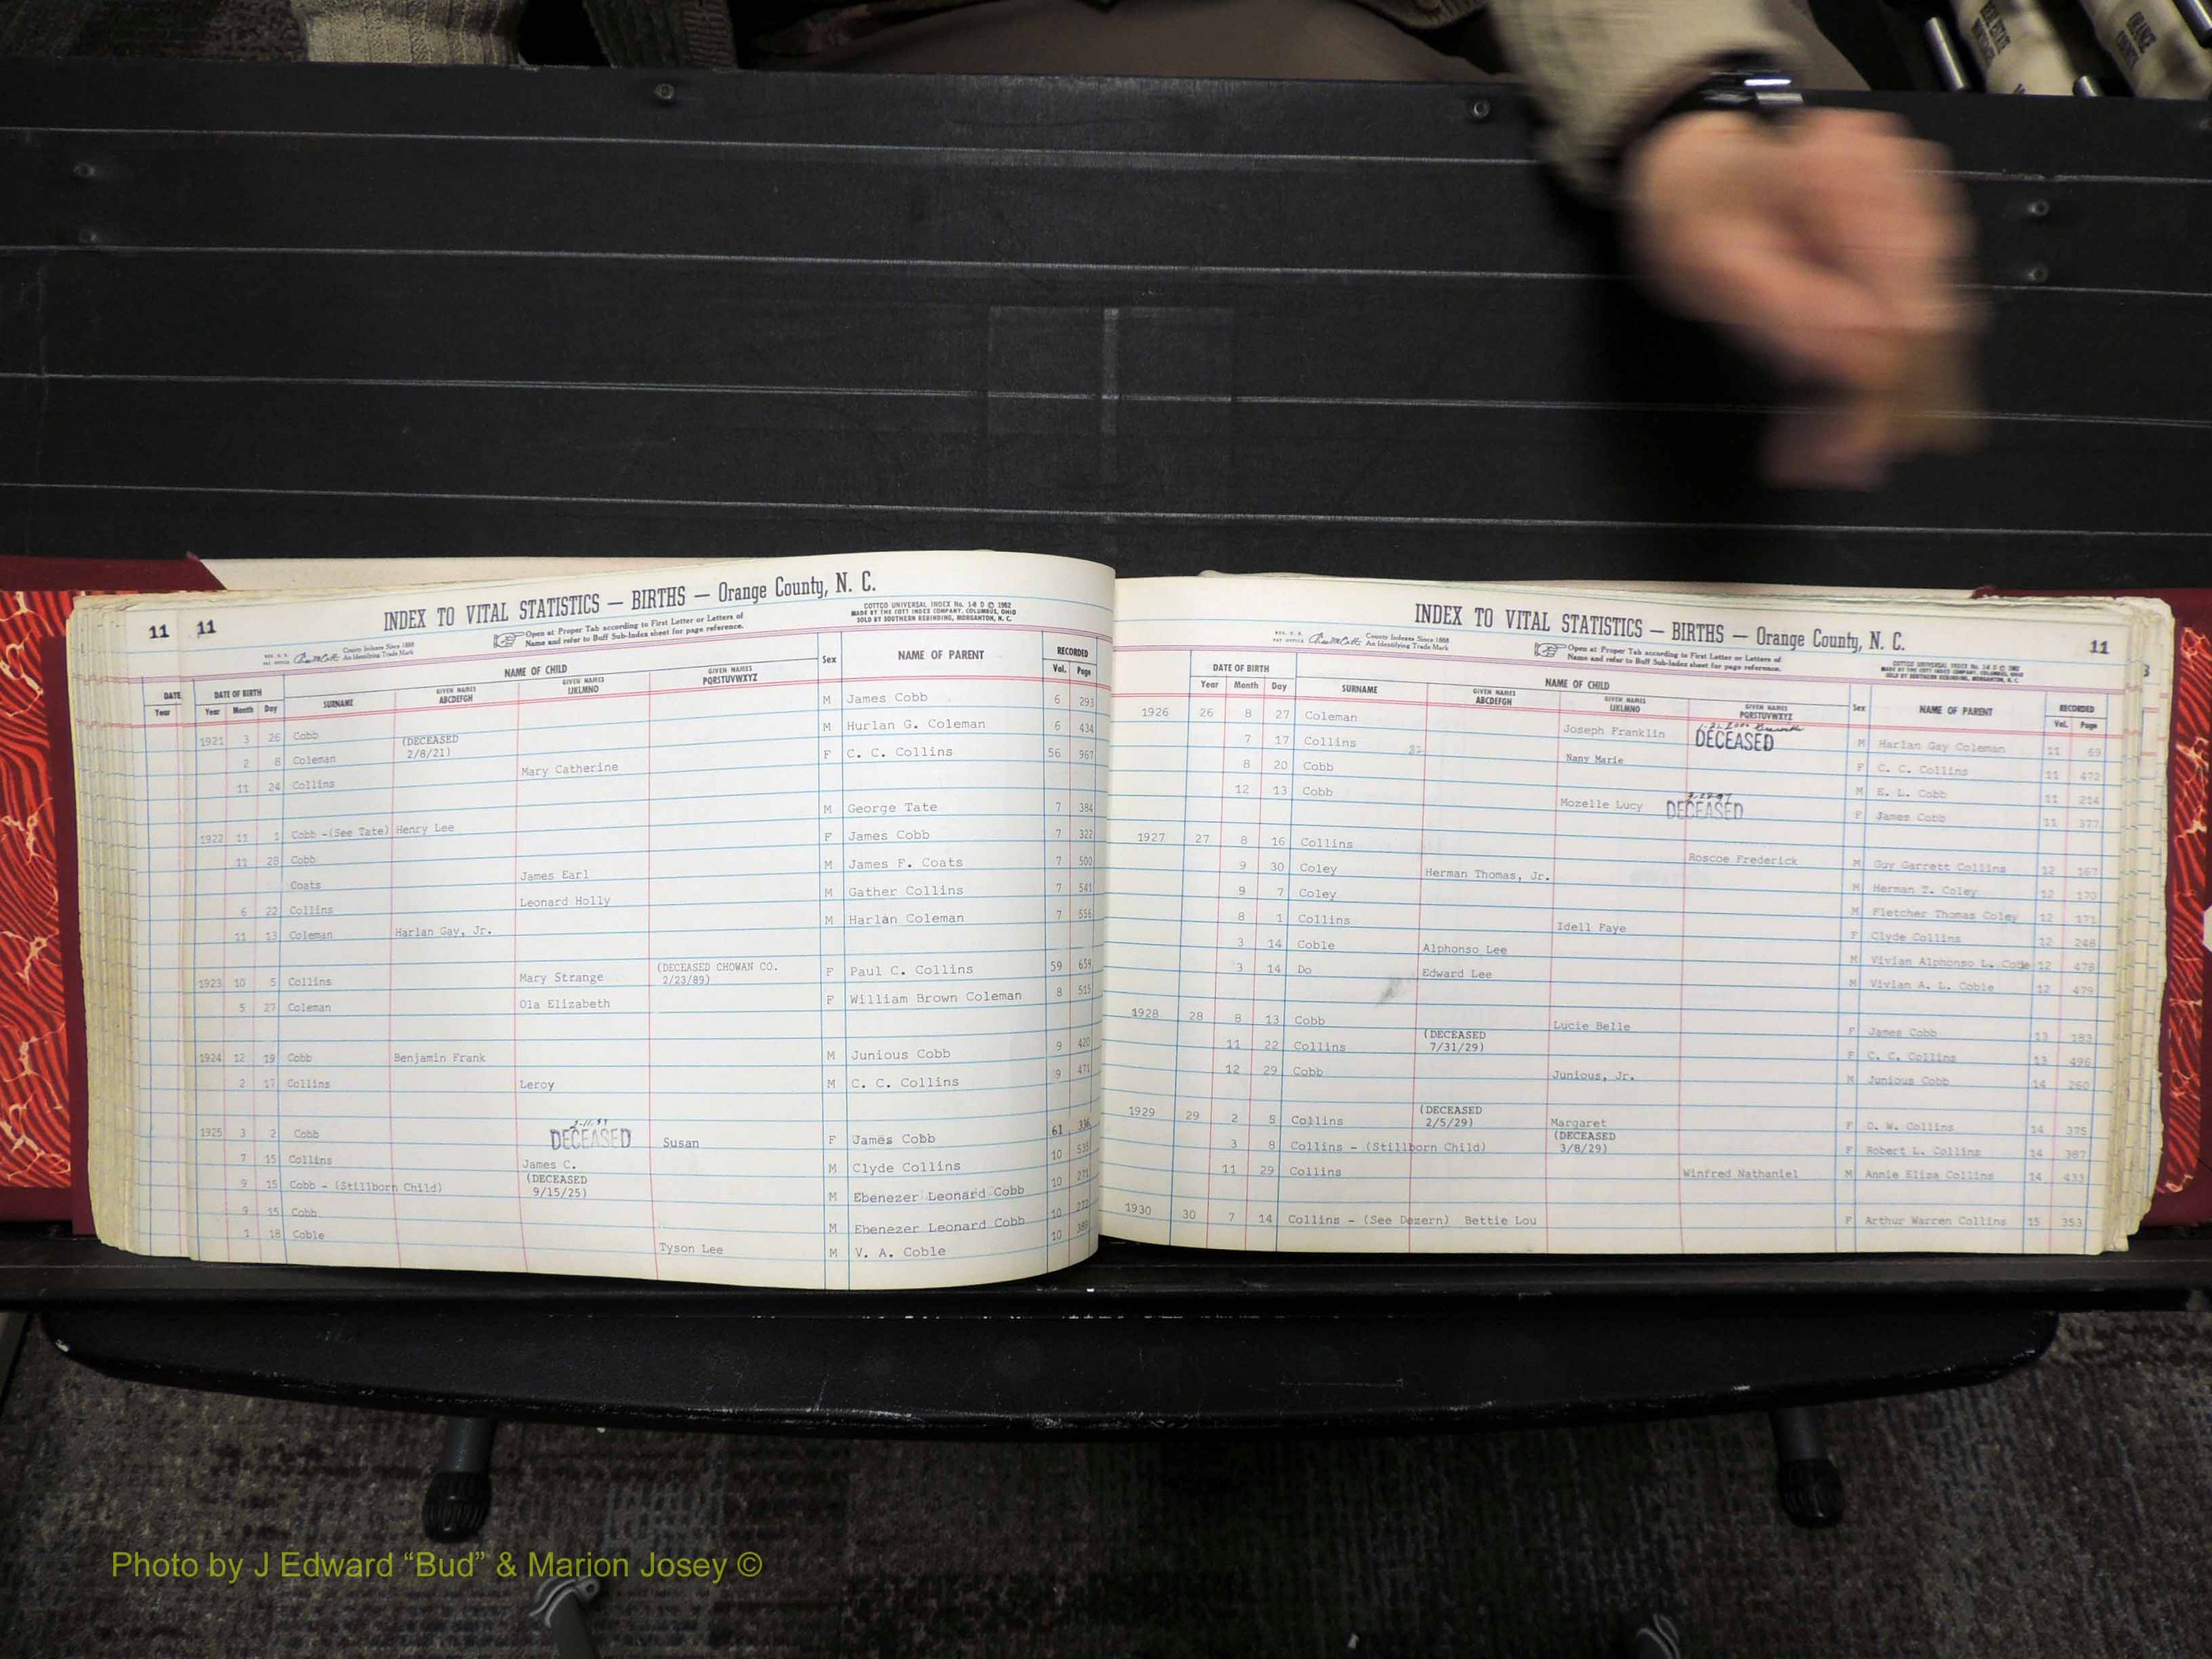 11 11
INDEX TO VITAL STATISTICS — BIRTHS — Orange County, N. C.
County Indexes Since 1888
An Identifying Trade Mark
Open at Proper Tab according to First Letter or Letters of
Name and refer to Buff Sub-Index sheet for page reference.
COTTCO UNIVERSAL INDEX No. 1-8 D © 1962
MADE BY THE COTT INDEX COMPANY, COLUMBUS, OHIO
SOLD BY SOUTHERN REBINDING, MORGANTON, N. C.
DATE DATE OF BIRTH NAME OF CHILD Sex NAME OF PARENT RECORDED
Year Year Month Day SURNAME GIVEN NAMES ABCDEFGH GIVEN NAMES IJKLMNO GIVEN NAMES PQRSTUVWXYZ Vol. Page
1921 3 26 Cobb M James Cobb 6 293
2 8 Coleman (DECEASED 2/8/21) M Hurlan G. Coleman 6 434
11 24 Collins Mary Catherine F C. C. Collins 56 967
1922 11 1 Cobb -(See Tate) Henry Lee M George Tate 7 384
11 28 Cobb F James Cobb 7 322
Coats James Earl M James F. Coats 7 500
6 22 Collins Leonard Holly M Gather Collins 7 541
11 13 Coleman Harlan Gay, Jr. M Harlan Coleman 7 556
1923 10 5 Collins Mary Strange (DECEASED CHOWAN CO. 2/23/89) F Paul C. Collins 59 659
5 27 Coleman Ola Elizabeth F William Brown Coleman 8 515
1924 12 19 Cobb Benjamin Frank M Junious Cobb 9 420
2 17 Collins Leroy M C. C. Collins 9 471
1925 3 2 Cobb DECEASED Susan F James Cobb 61 336
7 15 Collins James C. M Clyde Collins 10 535
9 15 Cobb - (Stillborn Child) (DECEASED 9/15/25) M Ebenezer Leonard Cobb 10 271
9 15 Cobb M Ebenezer Leonard Cobb 10 272
1 18 Coble Tyson Lee M V. A. Coble 10 389
INDEX TO VITAL STATISTICS — BIRTHS — Orange County, N. C.
11
County Indexes Since 1888
An Identifying Trade Mark
Open at Proper Tab according to First Letter or Letters of
Name and refer to Buff Sub-Index sheet for page reference.
DATE OF BIRTH NAME OF CHILD Sex NAME OF PARENT RECORDED
Year Month Day SURNAME GIVEN NAMES ABCDEFGH GIVEN NAMES IJKLMNO GIVEN NAMES PQRSTUVWXYZ Vol. Page
1926 26 8 27 Coleman Joseph Franklin DECEASED M Harlan Gay Coleman 11 69
7 17 Collins Nany Marie F C. C. Collins 11 472
8 20 Cobb M E. L. Cobb 11 214
12 13 Cobb Mozelle Lucy DECEASED F James Cobb 11 377
1927 27 8 16 Collins Roscoe Frederick M Guy Garrett Collins 12 167
9 30 Coley Herman Thomas, Jr. M Herman T. Coley 12 170
9 7 Coley M Fletcher Thomas Coley 12 171
8 1 Collins Idell Faye F Clyde Collins 12 248
3 14 Coble Alphonso Lee M Vivian Alphonso L. Coble 12 478
3 14 Do Edward Lee M Vivian A. L. Coble 12 479
1928 28 8 13 Cobb Lucie Belle F James Cobb 13 183
11 22 Collins (DECEASED 7/31/29) F C. C. Collins 13 496
12 29 Cobb Junious, Jr. M Junious Cobb 14 260
1929 29 2 5 Collins (DECEASED 2/5/29) Margaret F O. W. Collins 14 375
3 8 Collins - (Stillborn Child) (DECEASED 3/8/29) F Robert L. Collins 14 387
11 29 Collins Winfred Nathaniel M Annie Eliza Collins 14 433
1930 30 7 14 Collins - (See Dezern) Bettie Lou F Arthur Warren Collins 15 353
Photo by J Edward “Bud” & Marion Josey ©